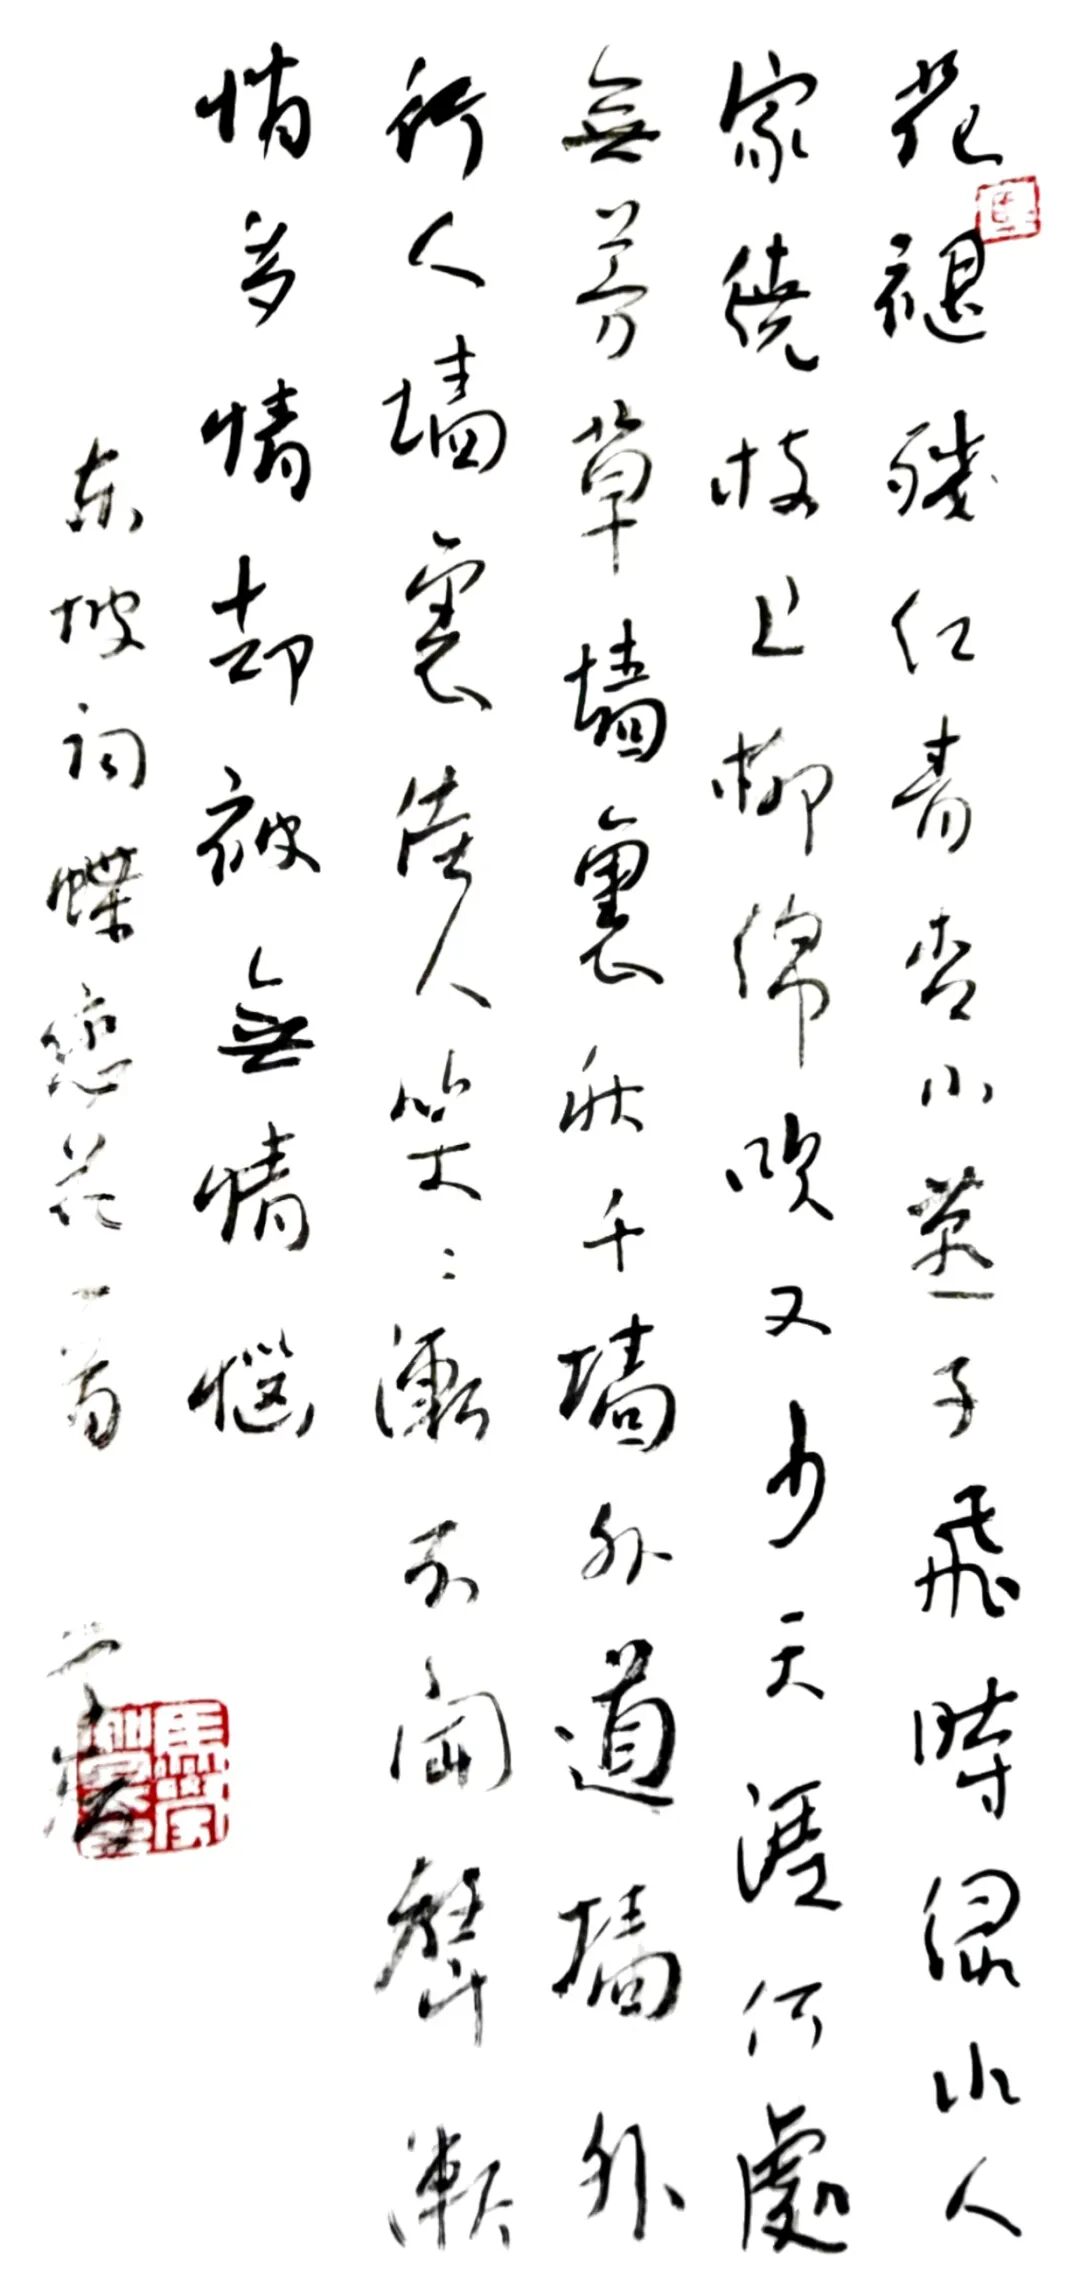 花褪残红青杏小燕子飛時绿水人
家绕枝上柳绵吹又少天涯何處
無芳草墙裏秋千墙外道墙外
行人墙裏佳人笑〻漸不闻聲漸
悄多情却被無情惱
东坡词蝶戀花一首